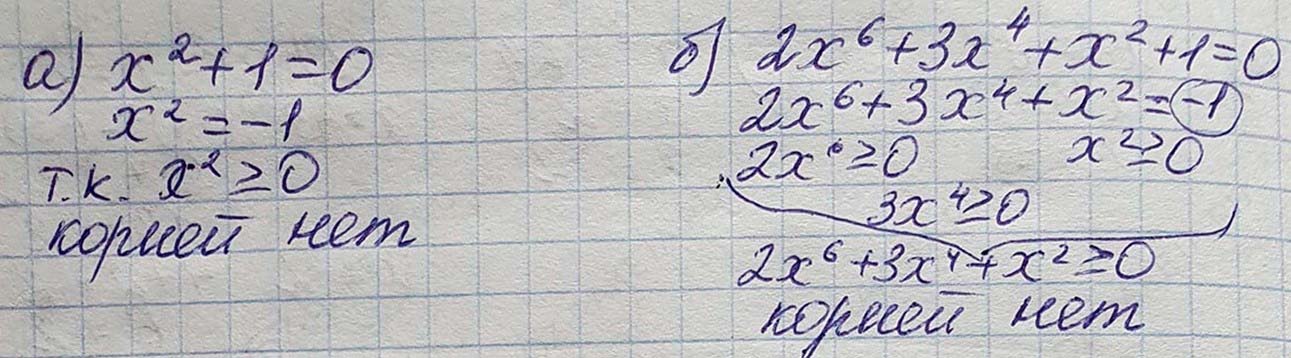 а) x²+1=0
x²=-1
т.к. x²≥0
корней нет
б) 2x⁶+3x⁴+x²+1=0
2x⁶+3x⁴+x²=-1
2x⁶≥0 x²≥0
3x⁴≥0
2x⁶+3x⁴+x²≥0
корней нет